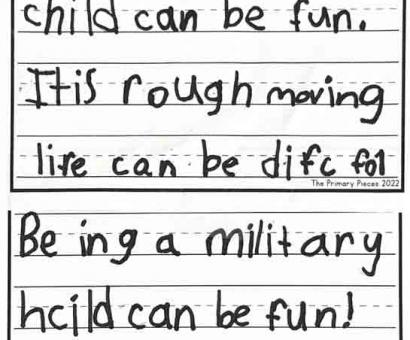 child can be fun.
It is rough moving
life can be difc fol
The Primary Pieces 2022
Be ing a military
hcild can be fun!